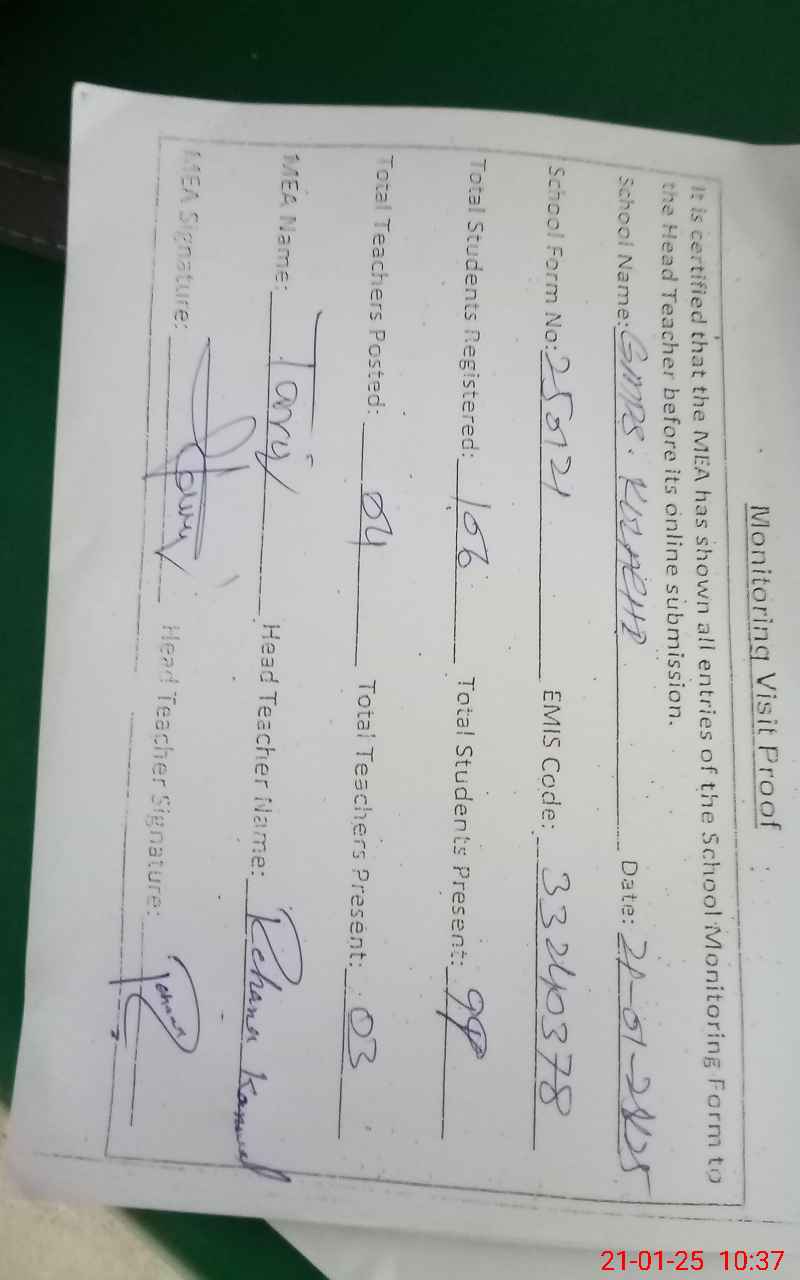 Monitoring Visit Proof
It is certified that the MEA has shown all entries of the School Monitoring Form to
the Head Teacher before its online submission.
School Name: GMPS. Date: 21-01-2025
School Form No: 250121 EMIS Code: 33240378
Total Students Registered: 106 Total Students Present: 99
Total Teachers Posted: 04 Total Teachers Present: 03
MEA Name: Tariq Head Teacher Name: Rehana Kanwal
MEA Signature: Head Teacher Signature: Rehana
21-01-25 10:37